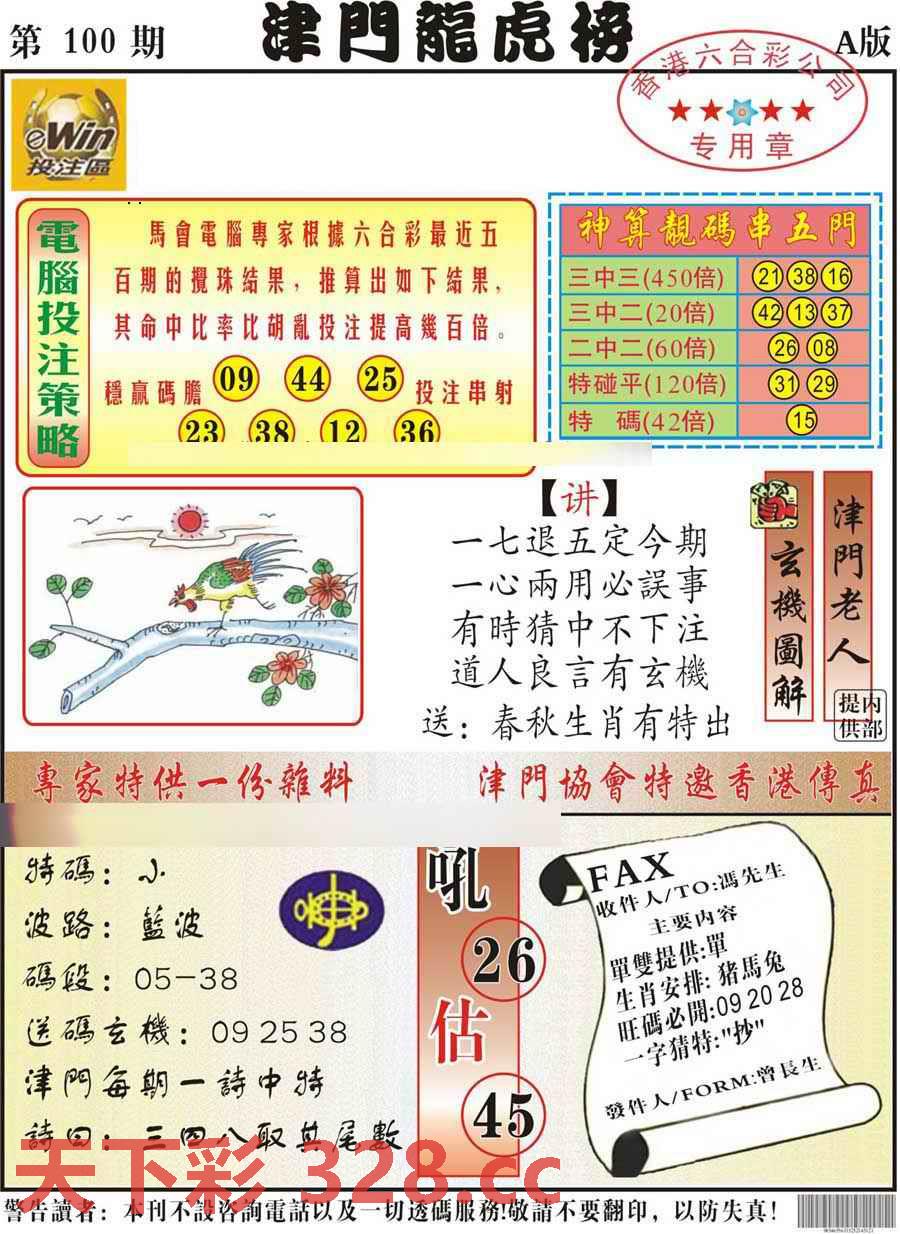 第 100 期
津門龍虎榜
A版
香港六合彩公司
专用章
eWin
投注區
電腦投注策略
馬會電腦專家根據六合彩最近五
百期的攪珠結果，推算出如下結果，
其命中比率比胡亂投注提高幾百倍。
穩贏碼膽 09 44 25 投注串射
23 38 12 36
神算靚碼串五門
三中三(450倍) 21 38 16
三中二(20倍) 42 13 37
二中二(60倍) 26 08
特碰平(120倍) 31 29
特　碼(42倍) 15
【讲】
一七退五定今期
一心兩用必誤事
有時猜中不下注
道人良言有玄機
送：春秋生肖有特出
玄機圖解
津門老人
内部提供
專家特供一份雜料
津門協會特邀香港傳真
特碼：小
波路：藍波
碼段：05-38
送碼玄機：09 25 38
津門每期一詩中特
詩曰：三四八取其尾數
吼
26
估
45
FAX
收件人/TO:馮先生
主要内容
單雙提供:單
生肖安排:猪馬兔
旺碼必開:09 20 28
一字猜特:"抄"
發件人/FORM:曾長生
天下彩 328.cc
警告讀者：本刊不設咨詢電話以及一切透碼服務!敬請不要翻印，以防失真!